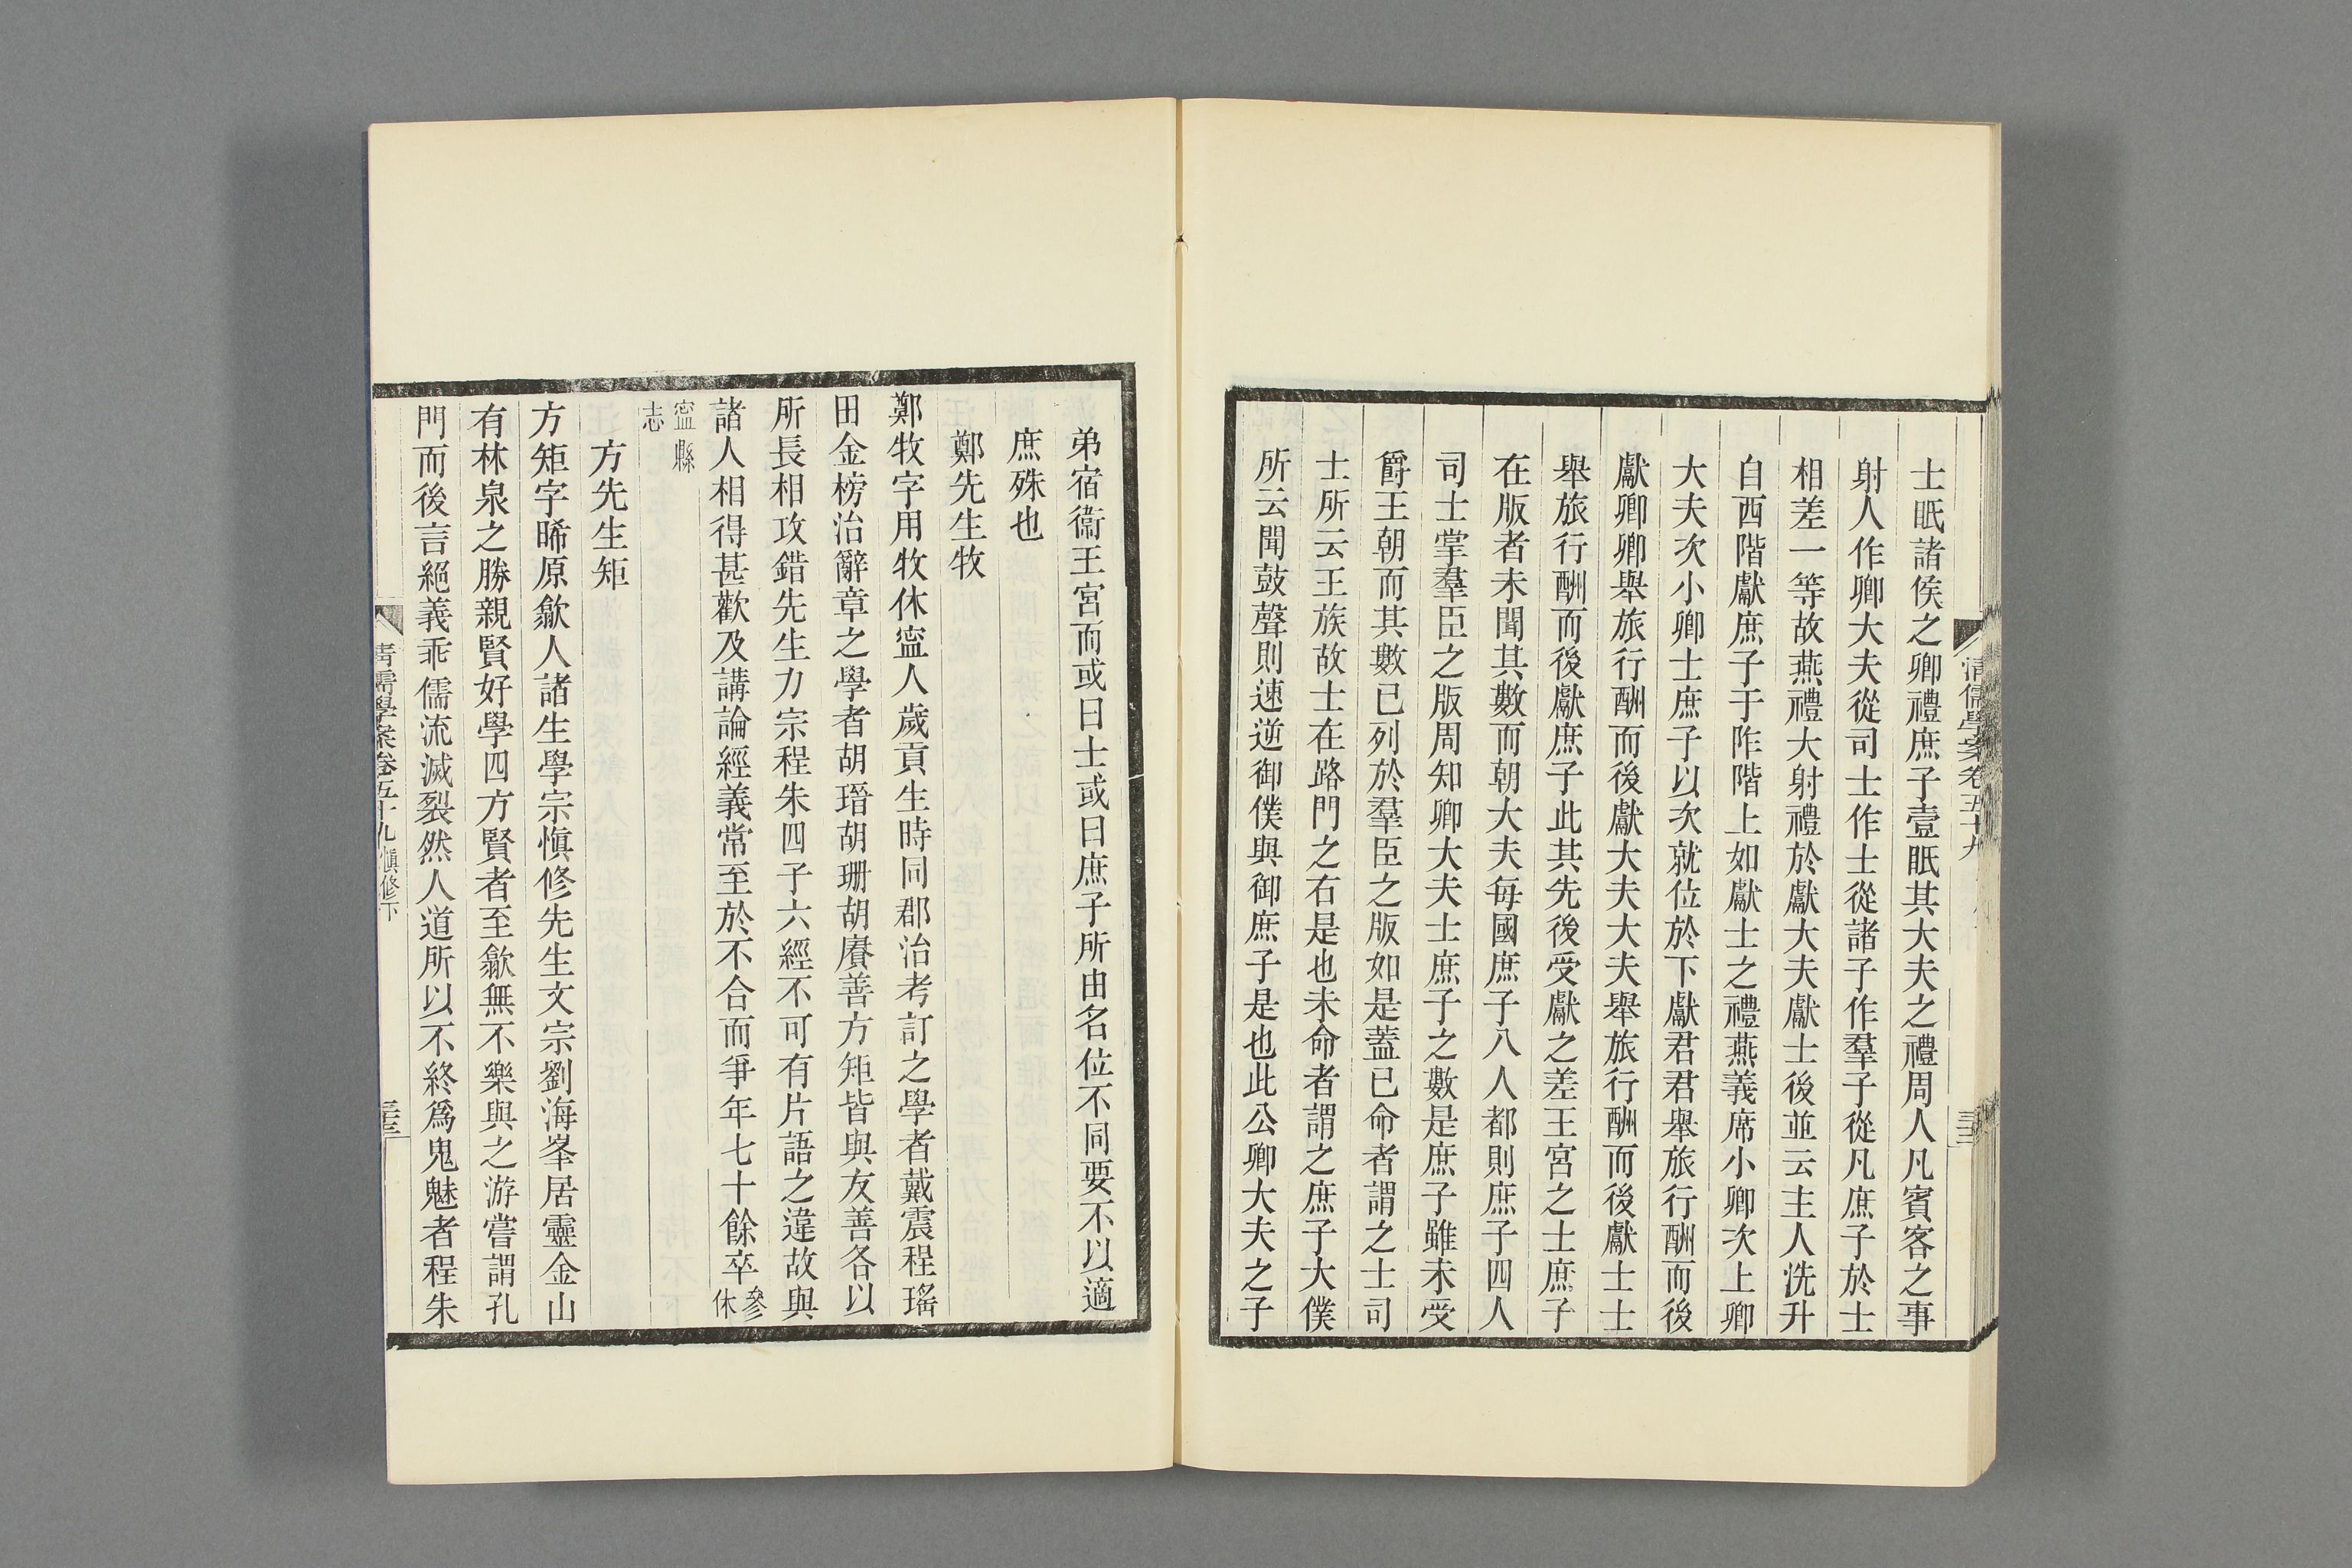 士眡諸侯之卿禮庶子壹眡其大夫之禮周人凡賓客之事
射人作卿大夫從司士作士從諸子作羣子從凡庶子於士
相差一等故燕禮大射禮於獻大夫獻士後並云主人洗升
自西階獻庶子于阼階上如獻士之禮燕義席小卿次上卿
大夫次小卿士庶子以次就位於下獻君君舉旅行酬而後
獻卿卿舉旅行酬而後獻大夫大夫舉旅行酬而後獻士士
舉旅行酬而後獻庶子此其先後受獻之差王宮之士庶子
在版者未聞其數而朝大夫每國庶子八人都則庶子四人
司士掌羣臣之版周知卿大夫士庶子之數是庶子雖未受
爵王朝而其數已列於羣臣之版如是蓋已命者謂之士司
士所云王族故士在路門之右是也未命者謂之庶子大僕
所云聞鼓聲則速逆御僕與御庶子是也此公卿大夫之子
清儒學案卷五十九
三十二
弟宿衞王宮而或曰士或曰庶子所由名位不同要不以適
庶殊也
鄭先生牧
鄭牧字用牧休寧人歲貢生時同郡治考訂之學者戴震程瑤
田金榜治辭章之學者胡瑨胡珊胡賡善方矩皆與友善各以
所長相攻錯先生力宗程朱四子六經不可有片語之違故與
諸人相得甚歡及講論經義常至於不合而爭年七十餘卒參
休
寧縣
志
方先生矩
方矩字晞原歙人諸生學宗愼修先生文宗劉海峯居靈金山
有林泉之勝親賢好學四方賢者至歙無不樂與之游嘗謂孔
門而後言絕義乖儒流滅裂然人道所以不終爲鬼魅者程朱
清儒學案卷五十九 愼修下
三十三